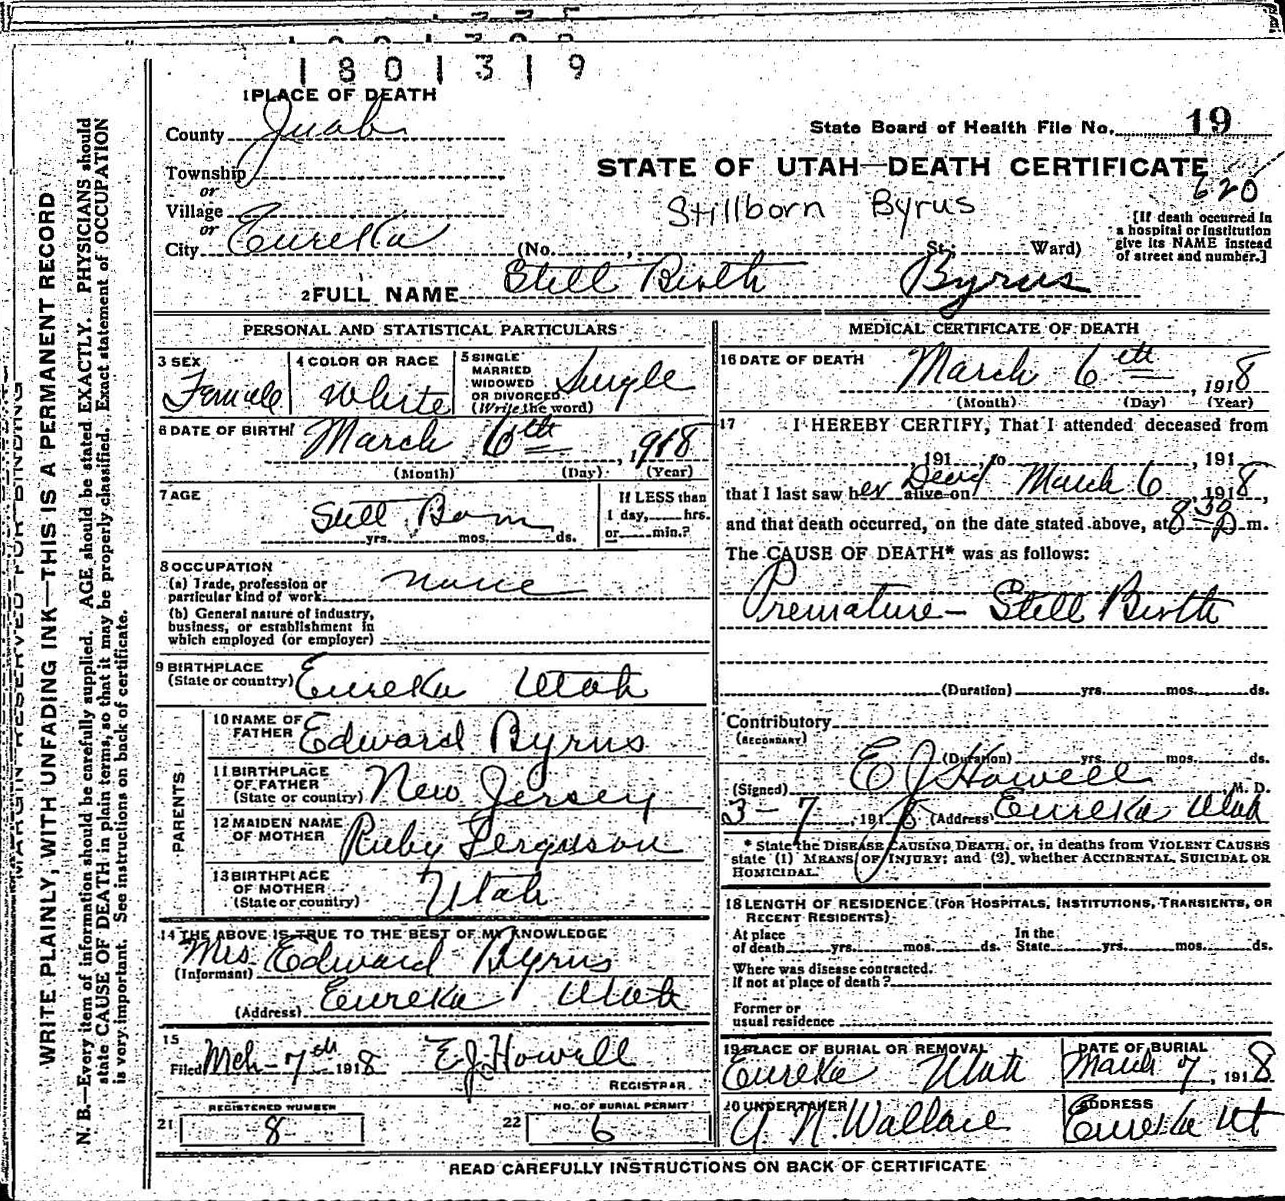 1801319
1 PLACE OF DEATH
County Juab
State Board of Health File No. 19
Township
or
Village
or
City Eureka
STATE OF UTAH—DEATH CERTIFICATE
620
Stillborn Byrus
(No. , St; Ward)
[If death occurred in
a hospital or institution
give its NAME instead
of street and number.]
2 FULL NAME Still Birth Byrus
PERSONAL AND STATISTICAL PARTICULARS
3 SEX
Female
4 COLOR OR RACE
White
5 SINGLE
MARRIED
WIDOWED
OR DIVORCED
(Write the word)
Single
6 DATE OF BIRTH
March 6th, 1918
(Month) (Day) (Year)
7 AGE
Still Born
yrs. mos. ds.
If LESS than
1 day, hrs.
or min.?
8 OCCUPATION
(a) Trade, profession or
particular kind of work none
(b) General nature of industry,
business, or establishment in
which employed (or employer)
9 BIRTHPLACE
(State or country) Eureka Utah
PARENTS
10 NAME OF
FATHER Edward Byrus
11 BIRTHPLACE
OF FATHER
(State or country) New Jersey
12 MAIDEN NAME
OF MOTHER Ruby Ferguson
13 BIRTHPLACE
OF MOTHER
(State or country) Utah
14 THE ABOVE IS TRUE TO THE BEST OF MY KNOWLEDGE
(Informant) Mrs. Edward Byrus
(Address) Eureka Utah
15
Filed Mch-7th 1918 E J Howell
REGISTRAR
REGISTERED NUMBER
21 8
NO. OF BURIAL PERMIT
22 6
MEDICAL CERTIFICATE OF DEATH
16 DATE OF DEATH
March 6th, 1918
(Month) (Day) (Year)
17 I HEREBY CERTIFY, That I attended deceased from
191 to , 191
that I last saw her alive on Dead March 6, 1918,
and that death occurred, on the date stated above, at 8 30 P m.
The CAUSE OF DEATH* was as follows:
Premature - Still Birth
(Duration) yrs. mos. ds.
Contributory
(SECONDARY)
(Duration) yrs. mos. ds.
(Signed) E J Howell M. D.
3-7, 1918 (Address) Eureka Utah
* State the DISEASE CAUSING DEATH, or, in deaths from VIOLENT CAUSES
state (1) MEANS OF INJURY; and (2) whether ACCIDENTAL, SUICIDAL OR
HOMICIDAL.
18 LENGTH OF RESIDENCE (FOR HOSPITALS, INSTITUTIONS, TRANSIENTS, OR
RECENT RESIDENTS)
At place In the
of death yrs. mos. ds. State yrs. mos. ds.
Where was disease contracted.
If not at place of death?
Former or
usual residence
19 PLACE OF BURIAL OR REMOVAL
Eureka Utah
DATE OF BURIAL
March 7, 1918
20 UNDERTAKER
A N. Wallace
ADDRESS
Eureka Ut
READ CAREFULLY INSTRUCTIONS ON BACK OF CERTIFICATE
MARGIN RESERVED FOR BINDING
WRITE PLAINLY, WITH UNFADING INK—THIS IS A PERMANENT RECORD
N. B.—Every item of information should be carefully supplied. AGE should be stated EXACTLY. PHYSICIANS should
state CAUSE OF DEATH in plain terms, so that it may be properly classified. Exact statement of OCCUPATION
is very important. See instructions on back of certificate.